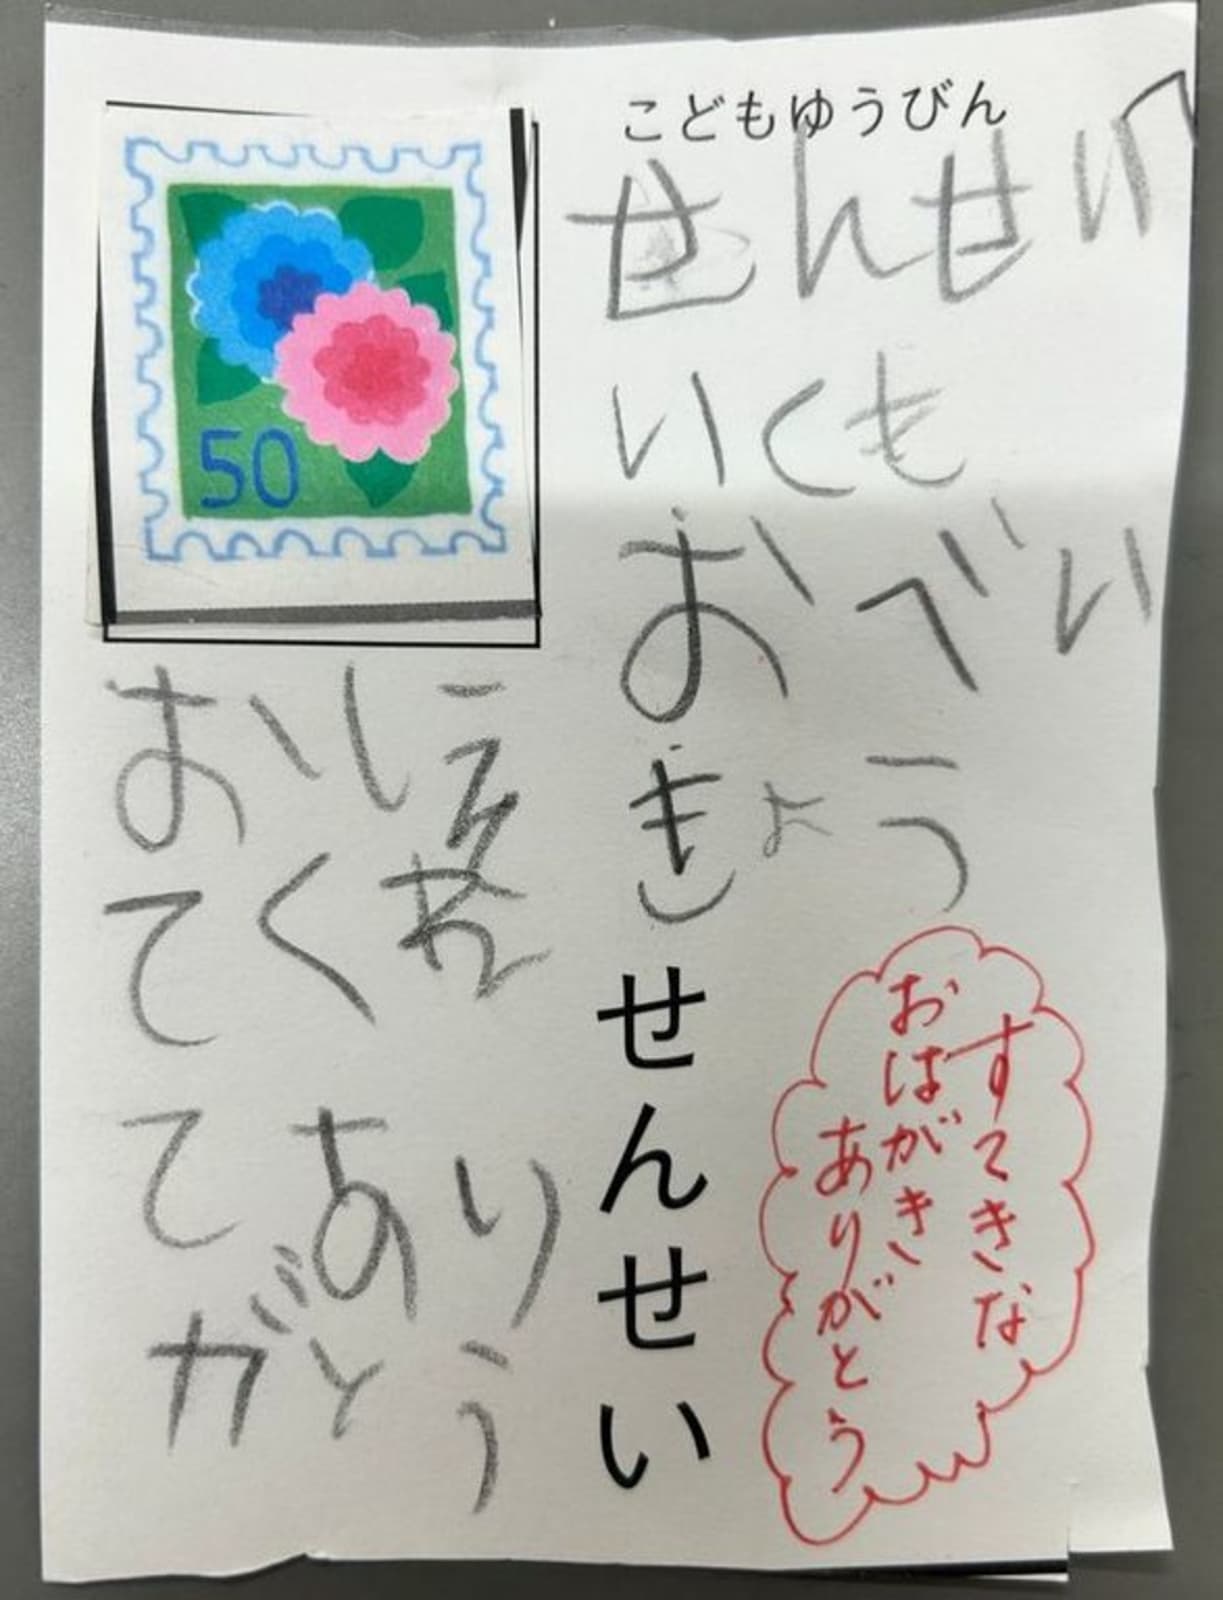 こどもゆうびん
せんせい
いくも
おべい
きょう
せんせい
50
おしえ
てくれ
てあり
がとう
すてきな
おはがき
ありがとう